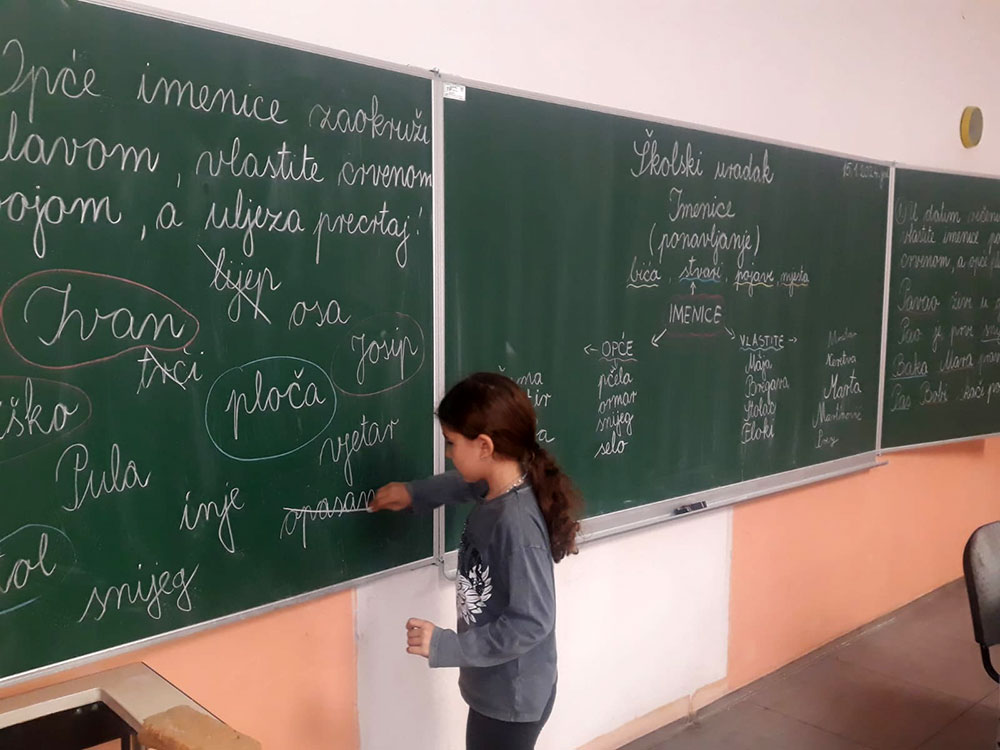 Opće imenice zaokruži
lavom, vlastite crvenom
bojom, a uljeza precrtaj!
lijep
osa
Ivan
trči
Josip
ploča
iško
vjetar
Pula
inje
opasan
tol
snijeg
Školski uradak
Imenice
(ponavljanje)
bića, stvari, pojave, mjesta
IMENICE
OPĆE
pčela
ormar
snijeg
selo
VLASTITE
Maja
Bregava
Stolac
Floki
Marta
ma
ir
a
U datum
vlastite imenice
crvenom, a opće
Pavao živi u
je prvi
Baka Mara
Pas Bobi